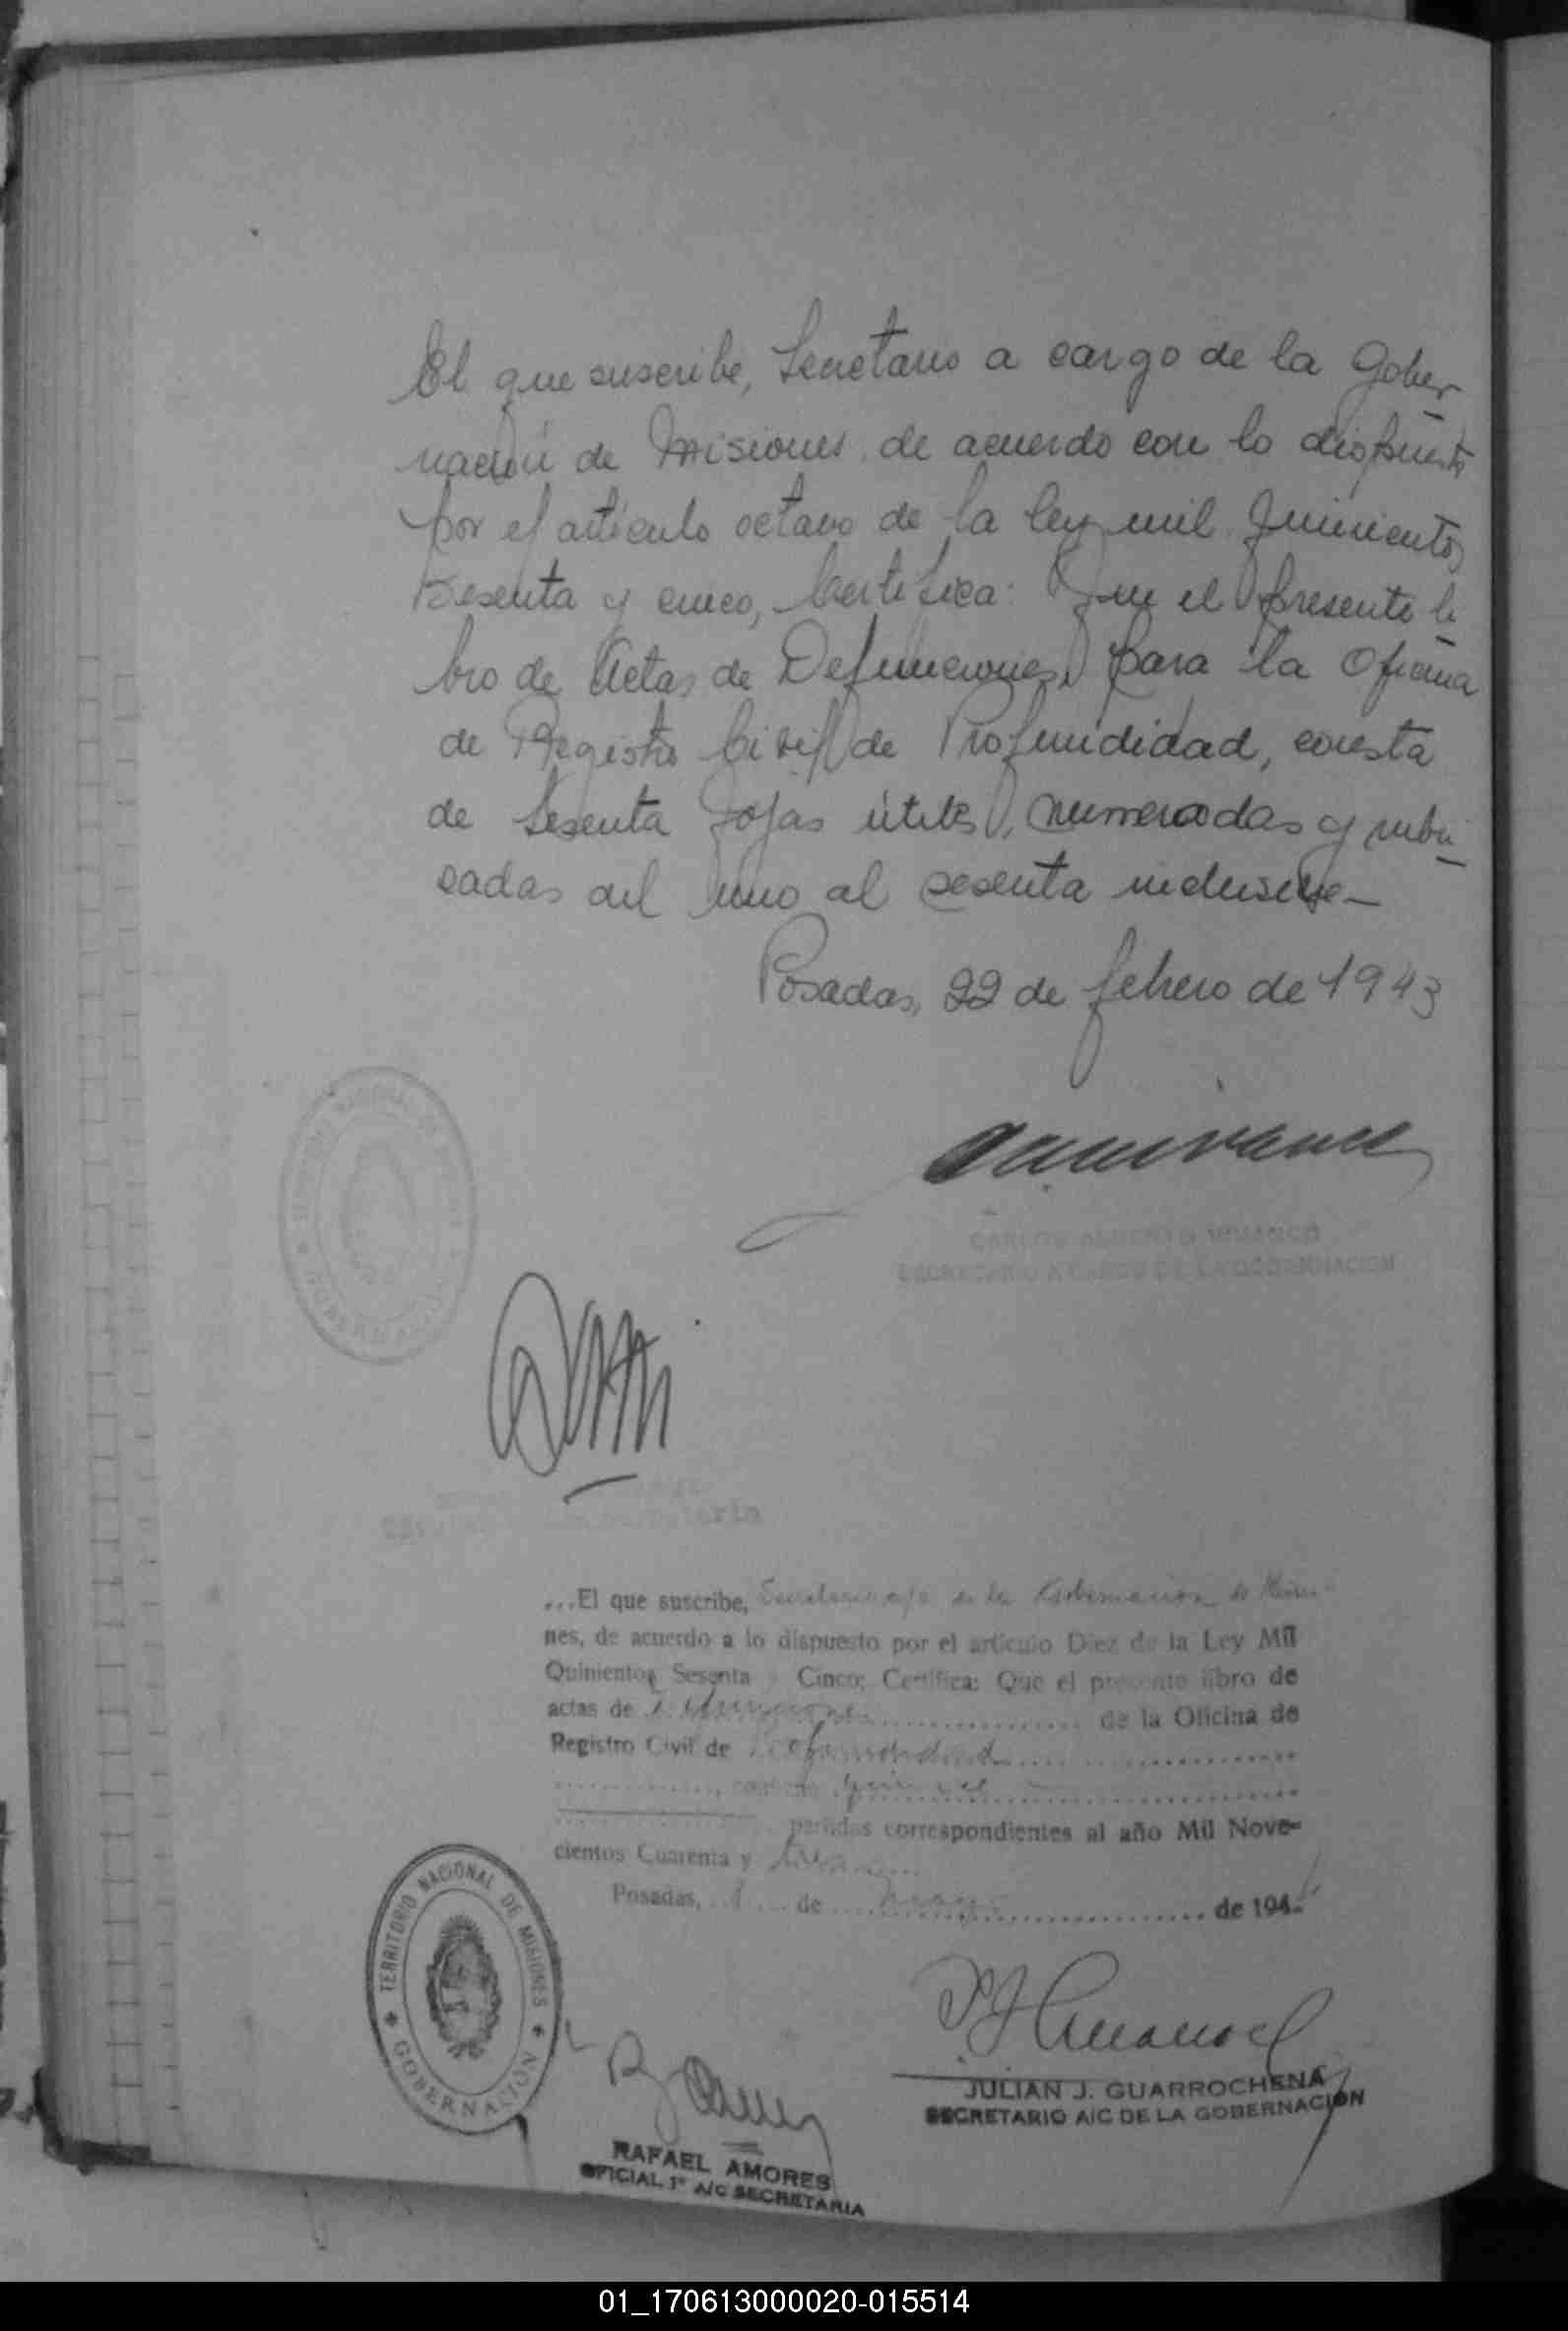 El que suscribe, Secretario a cargo de la Gober
nación de Misiones, de acuerdo con lo dispuesto
por el artículo octavo de la ley mil quinientos
sesenta y cinco, Certifica: Que el presente li
bro de Actas de Defunciones, para la Oficina
de Registro Civil de Profundidad, consta
de sesenta fojas útiles, numeradas y rubri
cadas del uno al sesenta inclusive—
Posadas, 22 de febrero de 1943
CARLOS ALBERTO
SECRETARIO A CARGO DE LA GOBERNACION
GOBERNACIÓN
...El que suscribe, Secretario a/c de la Gobernación de Misio-
nes, de acuerdo a lo dispuesto por el artículo Diez de la Ley Mil
Quinientos Sesenta y Cinco; Certifica: Que el presente libro de
actas de defunciones de la Oficina de
Registro Civil de Profundidad
contiene quince
partidas correspondientes al año Mil Nove-
cientos Cuarenta y tres
Posadas, de de 194
TERRITORIO NACIONAL DE MISIONES
GOBERNACIÓN
JULIAN J. GUARROCHENA
SECRETARIO A/C DE LA GOBERNACION
RAFAEL AMORES
OFICIAL 1º A/C SECRETARIA
01_170613000020-015514